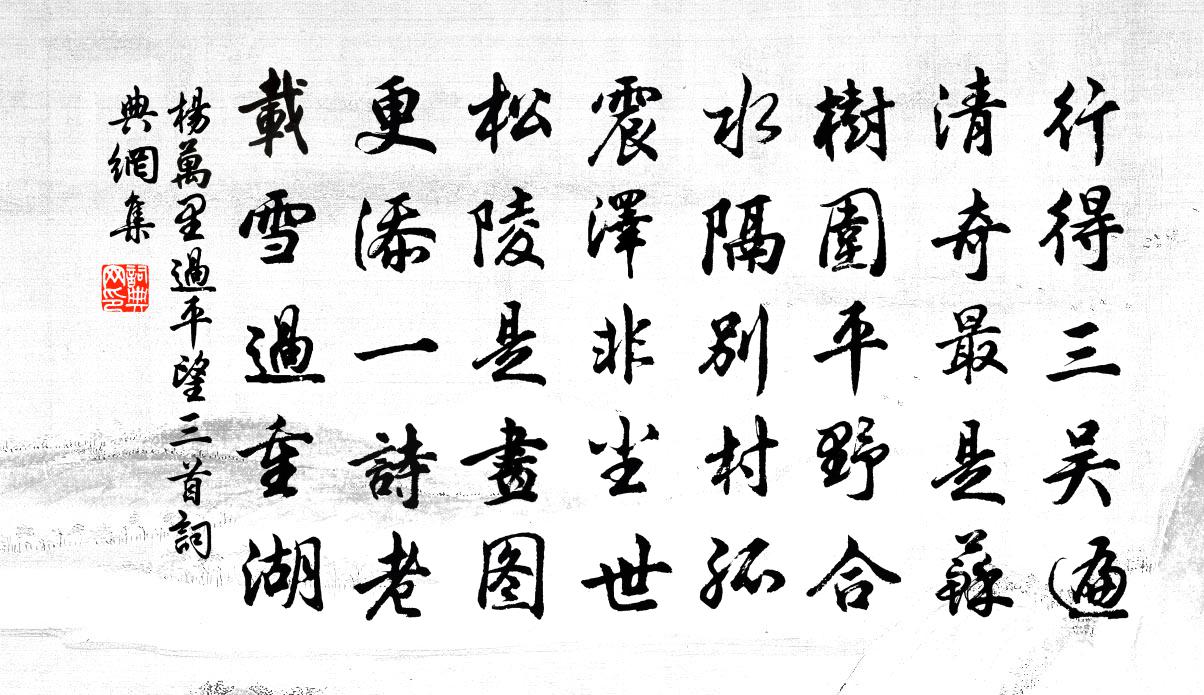 行得三吴遍
清奇最是蘇
樹圍平野合
水隔別村孤
震澤非塵世
松陵是畫图
更添一詩老
載雪過重湖
楊萬里過平望三首詞
典網集
詞典
网印